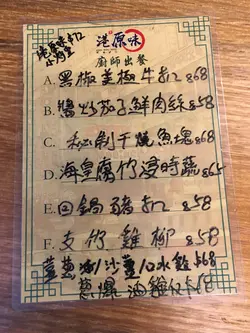 港原味
廚師出餐
A. 黑椒美極牛扒 $68
B. 醬炒茄子鮮肉絲 $58
C. 秘制干燒魚塊 $68
D. 海皇腐竹浸時蔬 $65
E. 回鍋豬扒 $58
F. 支竹雞柳 $58
薑蔥油/沙薑/口水雞 $68